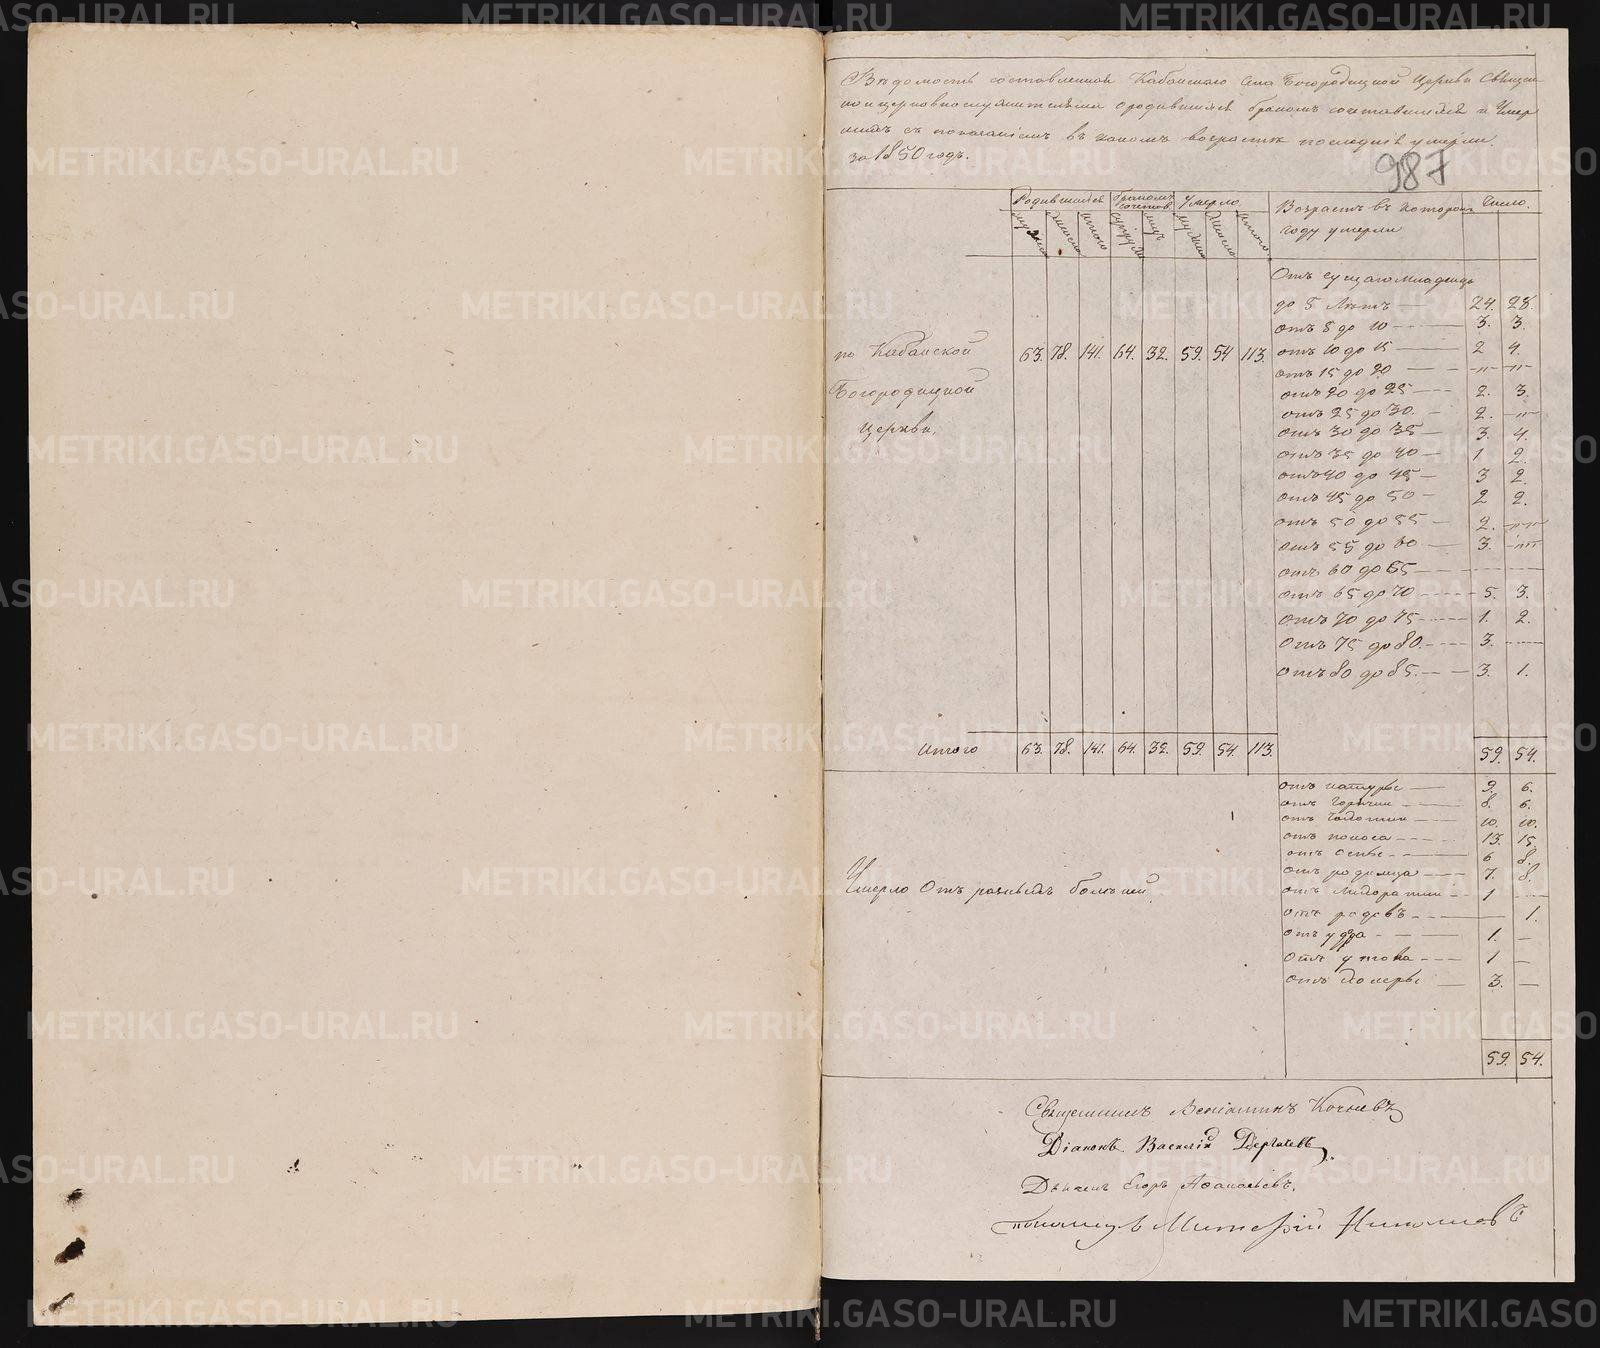 Вѣдомость составленная Кабанскаго Села Богородицкой Церкви Священ
но и церковнослужителями о родившихся бракомъ сочетавшихся и Умер
шихъ съ показаніемъ въ какомъ возрастѣ послѣдніе умерли
за 1850 годъ.
987
Родившихся бракомъ сочетав. Умерло. Возрастъ въ котором Число.
году умерли
мужеска женска итого супруж. лицъ мужска женска итого
Отъ сущаго младенца
до 5 Лѣтъ — 24. 28.
отъ 5 до 10 — 3. 3.
по Кабанской 63. 78. 141. 64. 32. 59. 54 113. отъ 10 до 15 — 2 4.
отъ 15 до 20 — — " — — " —
Богородицкой отъ 20 до 25 — 2. 3.
отъ 25 до 30. — 2. — " —
Церкви. отъ 30 до 35 — 3. 4.
отъ 35 до 40 — 1 2.
отъ 40 до 45 — 3 2.
отъ 45 до 50 — 2 2.
отъ 50 до 55 — 2. — " —
отъ 55 до 60 — 3. — " —
отъ 60 до 65 — — —
отъ 65 до 70 — 5. 3.
отъ 70 до 75 — 1. 2.
отъ 75 до 80. — 3. —
отъ 80 до 85. — 3. 1.
Итого 63. 78. 141. 64. 32. 59. 54. 113. 59. 54.
отъ натуры — 9. 6.
отъ горячки — 8. 6.
отъ чахотки — 10. 10.
отъ поноса — 13. 15.
отъ оспы — 6 8.
отъ родимца — 7. 8.
Умерло Отъ разныхъ болѣзней отъ — 1 —
отъ родовъ — — 1.
отъ — 1. —
отъ — 1 —
отъ холеры — 3. —
59. 54.
Священникъ Веніаминъ Кочневъ
Діаконъ Василій Дерябевъ
Дьячекъ Егоръ Афанасьевъ.
пономарь Николаевъ
METRIKI.GASO-URAL.RU